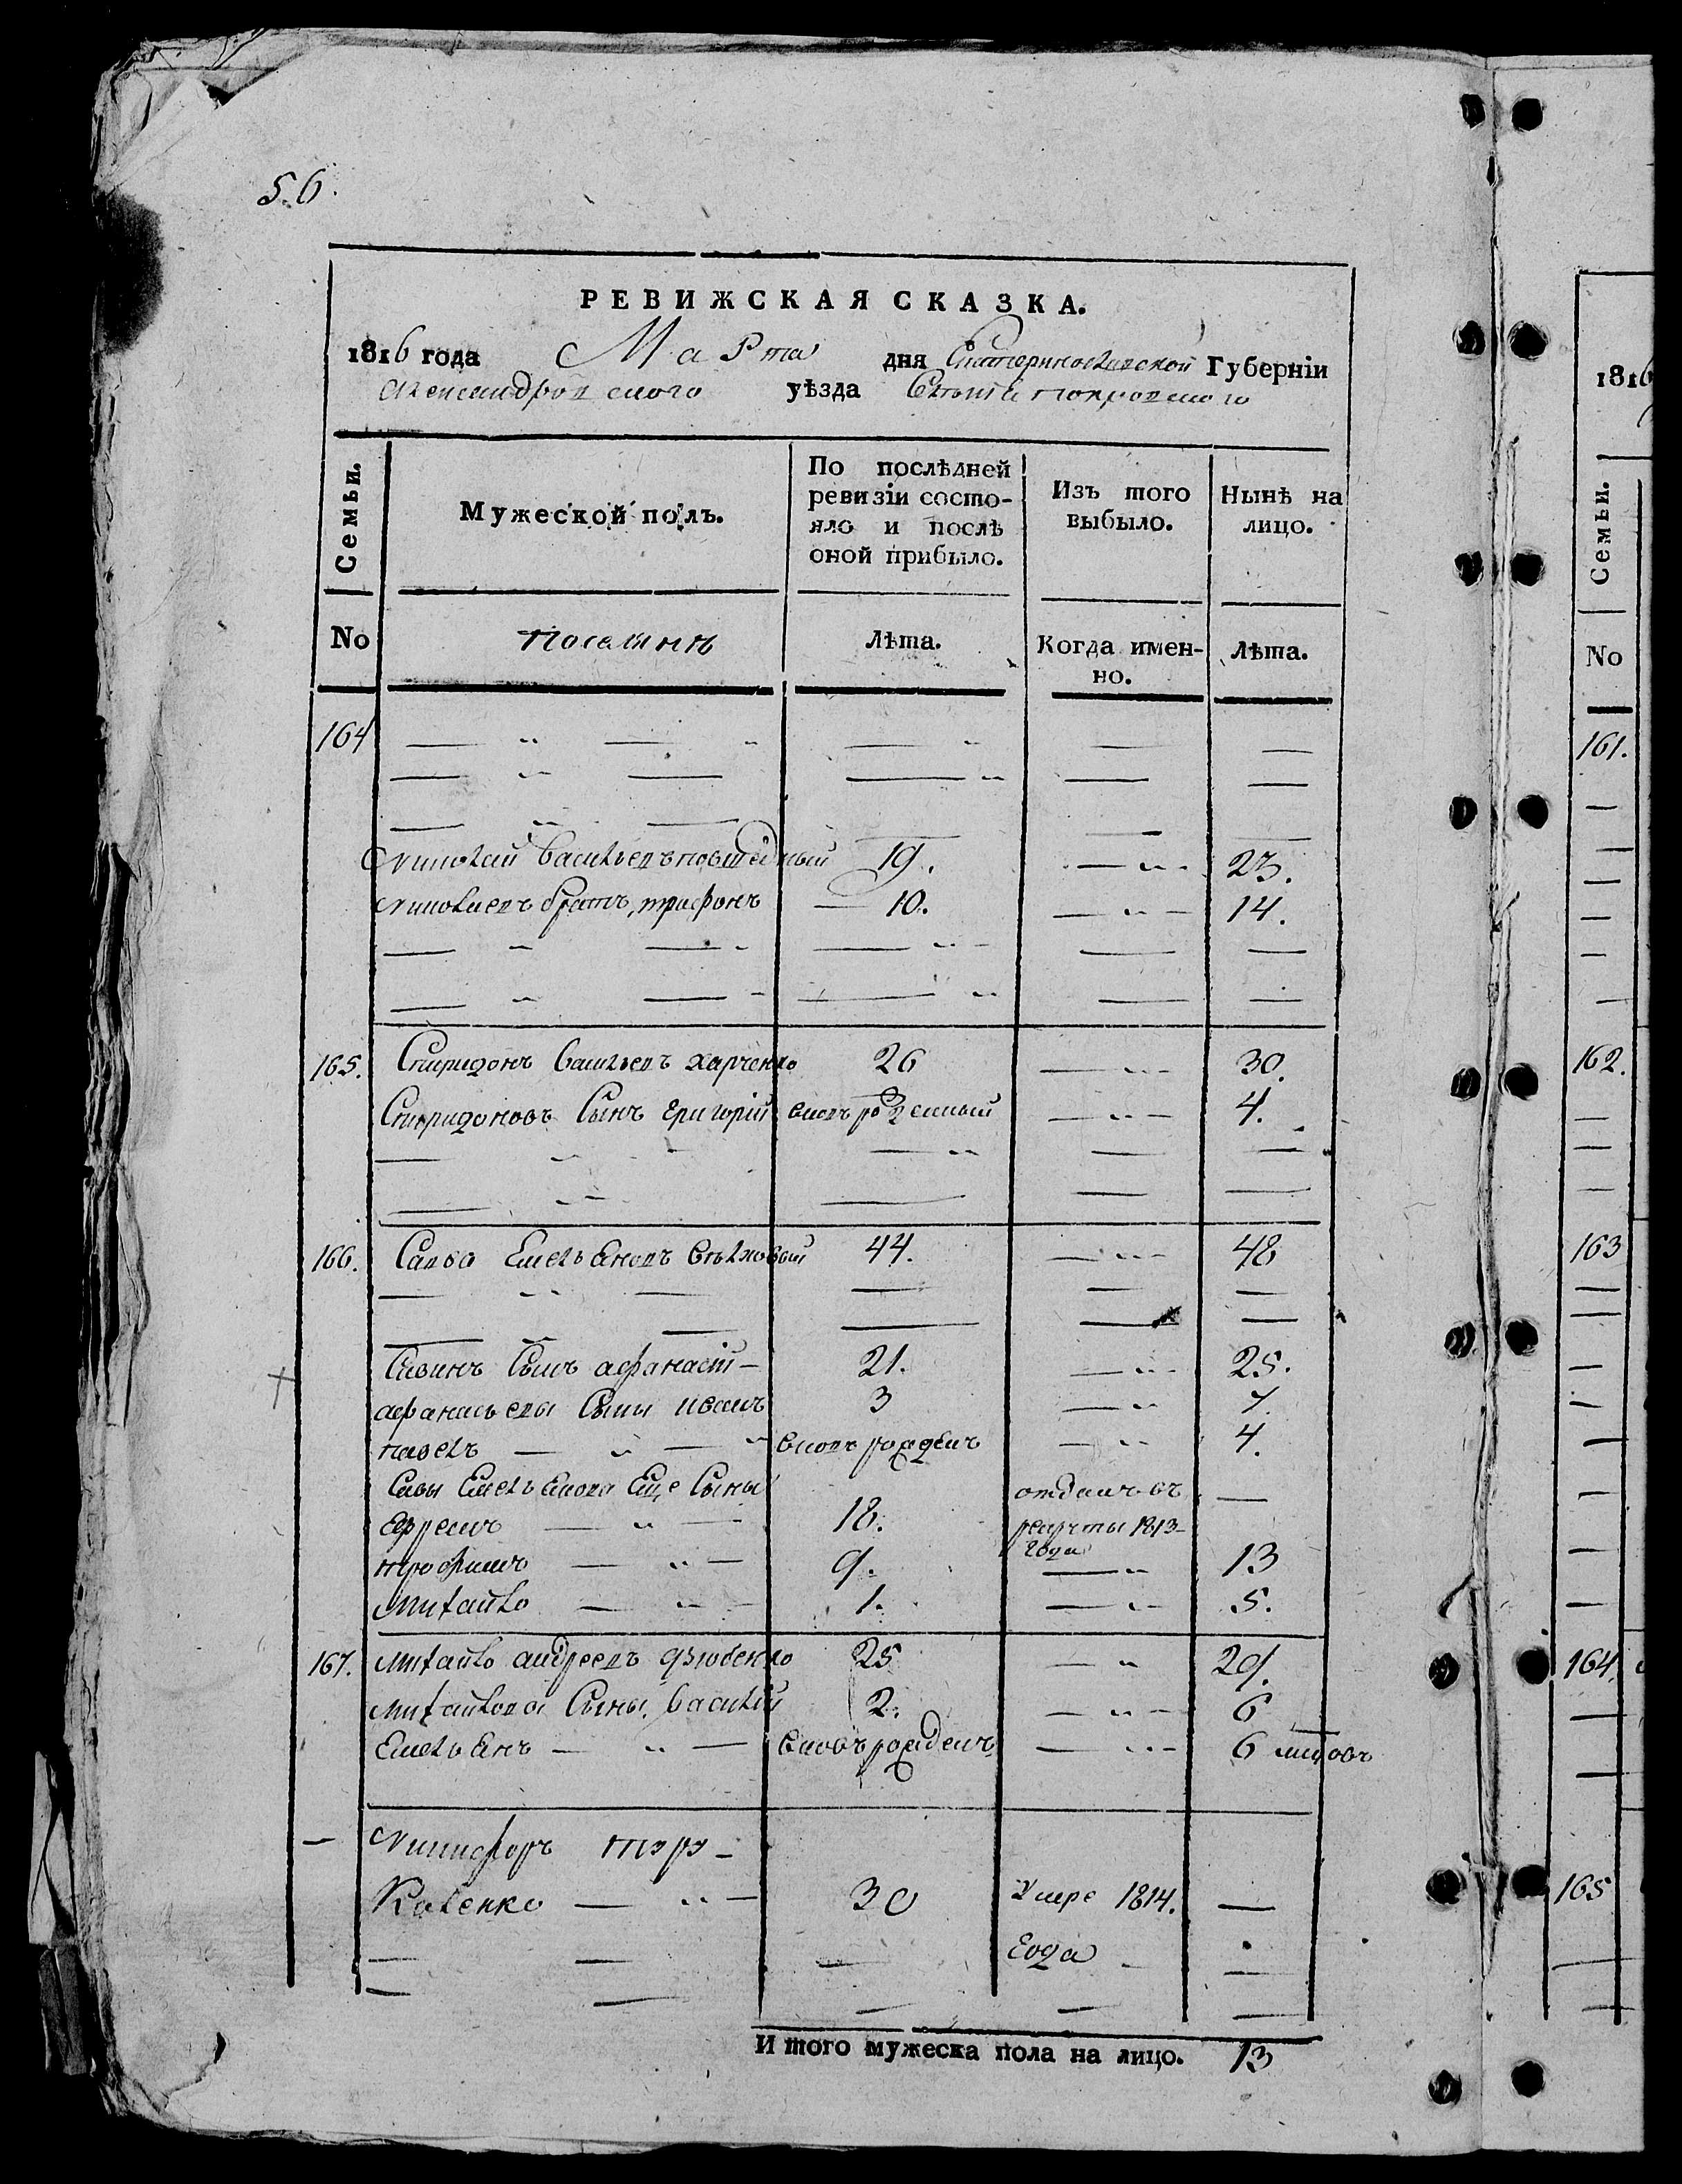 56.
РЕВИЖСКАЯ СКАЗКА.
1816 года Марта дня Екатеринославской Губерніи
Александровского уѣзда Села покровского
Семьи.
Мужеской полъ.
По послѣдней ревизіи состояло и послѣ оной прибыло.
Изъ того выбыло.
Нынѣ на лицо.
No
Поселянъ
Лѣта.
Когда именно.
Лѣта.
164
Николай Васильевъ 19. — 23.
Николаевъ братъ, трифонъ — 10. — 14.
165. Спиридонъ Васильевъ харченко 26 — 30.
Спиридоновъ Сынъ григорій вновь рожденный — 4.
166. Савва Емельяновъ 44. — 48
Савинъ Сынъ афанасій — 21. — 25.
афанасьевы Сыны иванъ 3 — 7
павелъ — вновь рожденъ — 4.
Савы Емельянова Еще Сыны
Ефремъ — 18. отданъ въ рекруты 1813 — года —
трофимъ — 9. — 13
Михайло — 1. — 5.
167. Михайло андреевъ дзюбенко 25 — 29.
Михайлова Сыны, Василій 2. — 6
Емельянъ — вновь рожденъ — 6
— Никифоръ
— 30 Умре 1814. года —
И того мужеска пола на лицо. 13
1816
Семьи.
No
161.
162.
163
164
165